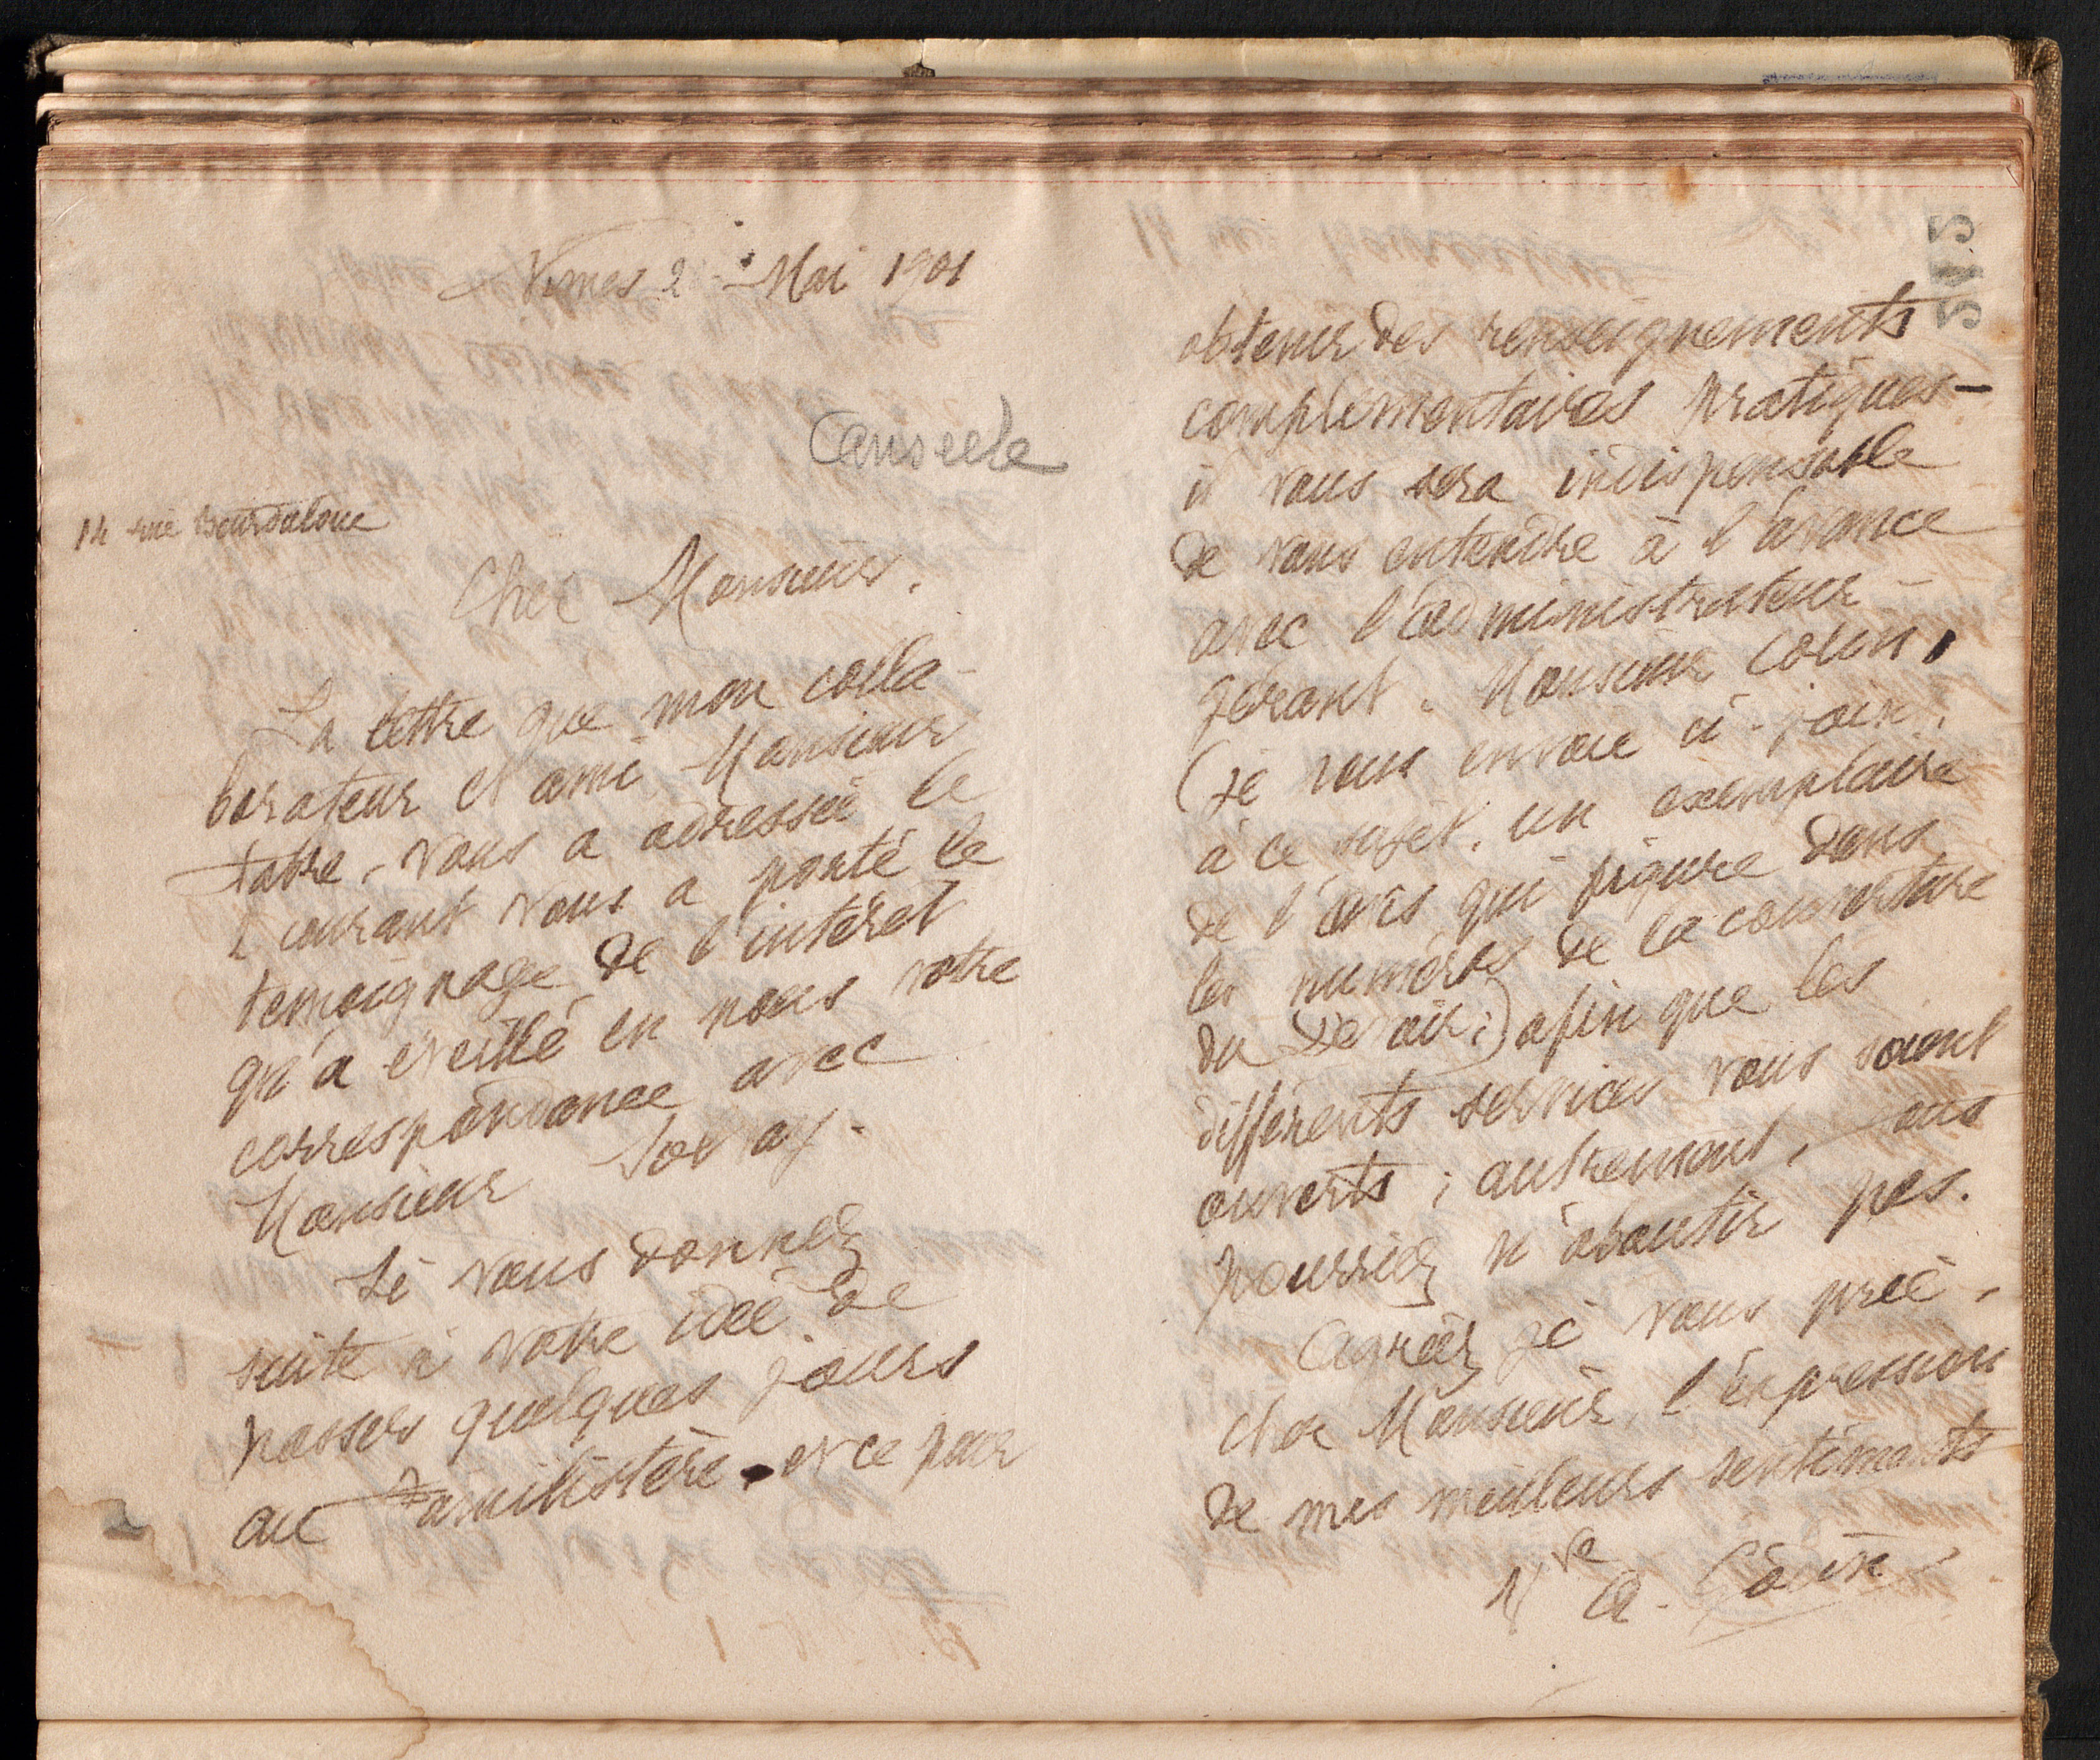 Nimes 2 Mai 1901
14 rue Bourdaloue
Cher Monsieur.
La lettre que mon colla-
borateur et ami Monsieur
Fabre, vous a adressée le
1 courant vous a porté le
temoignage de l'intérêt
qu'a éveillé en nous votre
correspondance avec
Monsieur
Si vous donnez
suite à votre idée de
passer quelques jours
au Familistère. et ce pour
545
obtenir des renseignements
complémentaires pratiques-
il vous sera indispensable
de vous entendre à l'avance
avec l'administrateur-
gérant. Monsieur Colin,
(je vous envoie ci-joint.
à ce sujet. un exemplaire
de l'avis qui figure dans
les numéros de la couverture
du Devoir;) afin que les
différents services vous soient
ouverts; autrement, vous
pourriez n'aboutir pas.
Agréez je vous prie,
cher Monsieur, l'expression
de mes meilleurs sentiments
Vve A. Godin